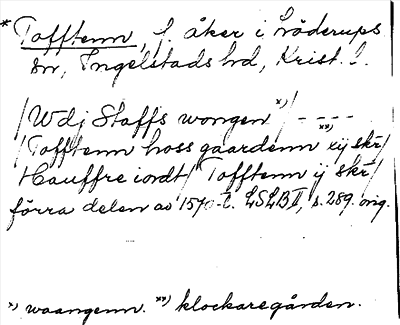 * Tofftenn, f. åker i Löderups
sn, Ingelstads hd, Krist. l.
/Wdj Staffs wongen *)/ - - - -
/Tofftenn hoss gaardenn **) xij skr/
Hauffre iordt/ Tofftenn ij skr/
förra delen av 1570-t. LSLB II, s. 289. orig.
*) waangenn. **) klockaregården.